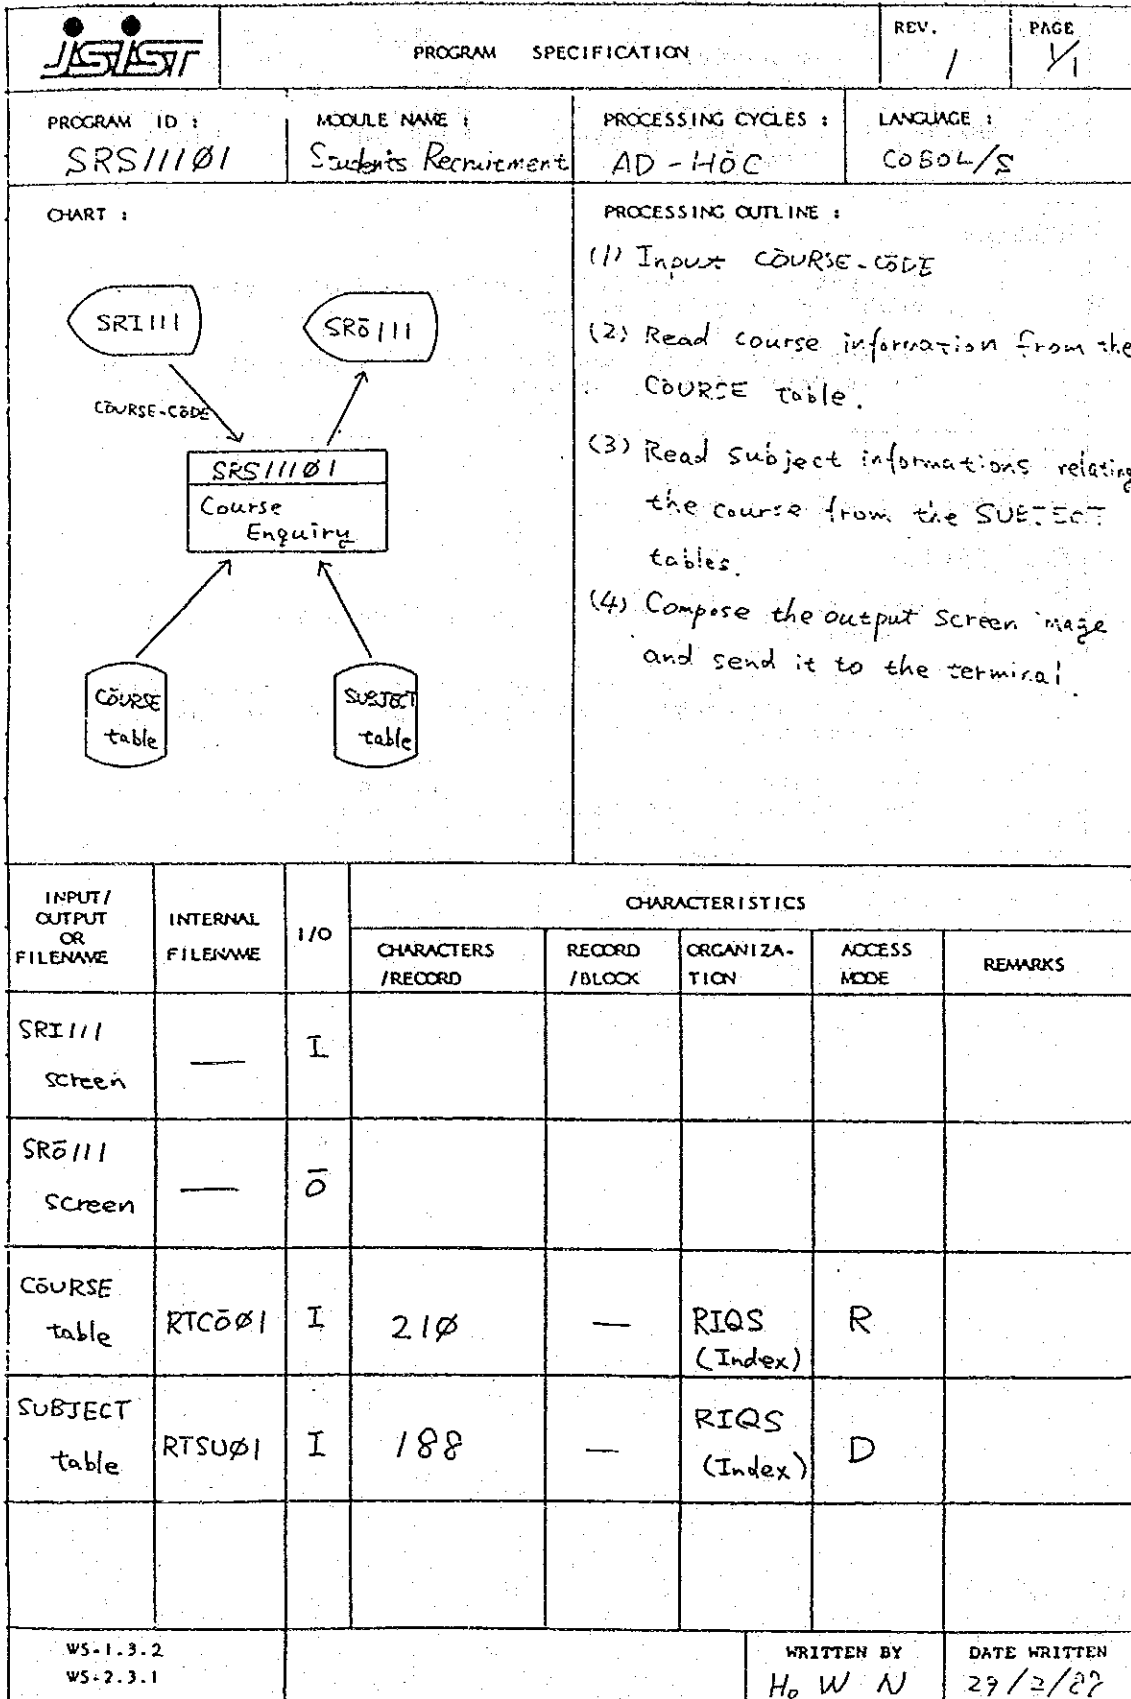 JSIST
PROGRAM SPECIFICATION
REV.
1
PAGE
1/1
PROGRAM ID :
SRS111Ø1
MODULE NAME :
Students Recruitment
PROCESSING CYCLES :
AD-HOC
LANGUAGE :
COBOL/S
CHART :
SRI111
SRO111
COURSE-CODE
SRS111Ø1
Course
Enquiry
COURSE
table
SUBJECT
table
PROCESSING OUTLINE :
(1) Input COURSE-CODE
(2) Read course information from the
COURSE table.
(3) Read subject informations relating
the course from the SUBJECT
tables.
(4) Compose the output screen image
and send it to the terminal.
INPUT/
OUTPUT
OR
FILENAME
INTERNAL
FILENAME
I/O
CHARACTERISTICS
CHARACTERS
/RECORD
RECORD
/BLOCK
ORGANIZA-
TION
ACCESS
MODE
REMARKS
SRI111
screen
—
I
SRO111
screen
—
O
COURSE
table
RTCOØ1
I
21Ø
—
RIQS
(Index)
R
SUBJECT
table
RTSUØ1
I
188
—
RIQS
(Index)
D
WS-1.3.2
WS-2.3.1
WRITTEN BY
Ho W N
DATE WRITTEN